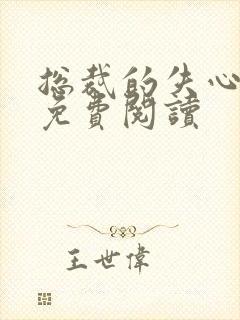 总裁的失心
免費閱讀
王世偉